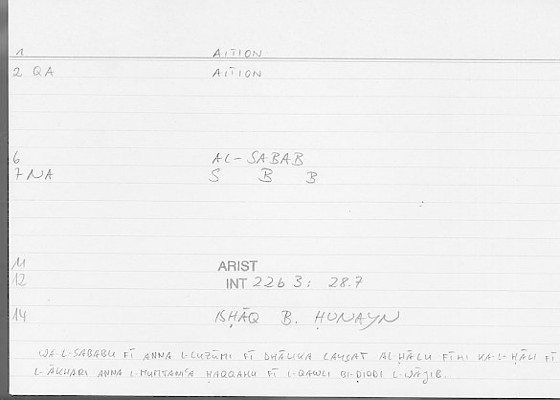 1 AITION
2 QA AITION
6 AL-SABAB
7 NA S B B
11 ARIST
12 INT 22b 3; 28.7
14 ISḤĀQ B. ḤUNAYN
WA-L-SABABU FĪ ANNA L-LUZŪMI FĪ DHĀLIKA LAYSAT AL-ḤĀLU FĪHI KA-L-ḤĀLI FĪ
L-ĀKHARI ANNA L-MUMTANIʿA ḤAQQAHU FĪ L-QAWLI BI-ḌIDDI L-WĀJIB.